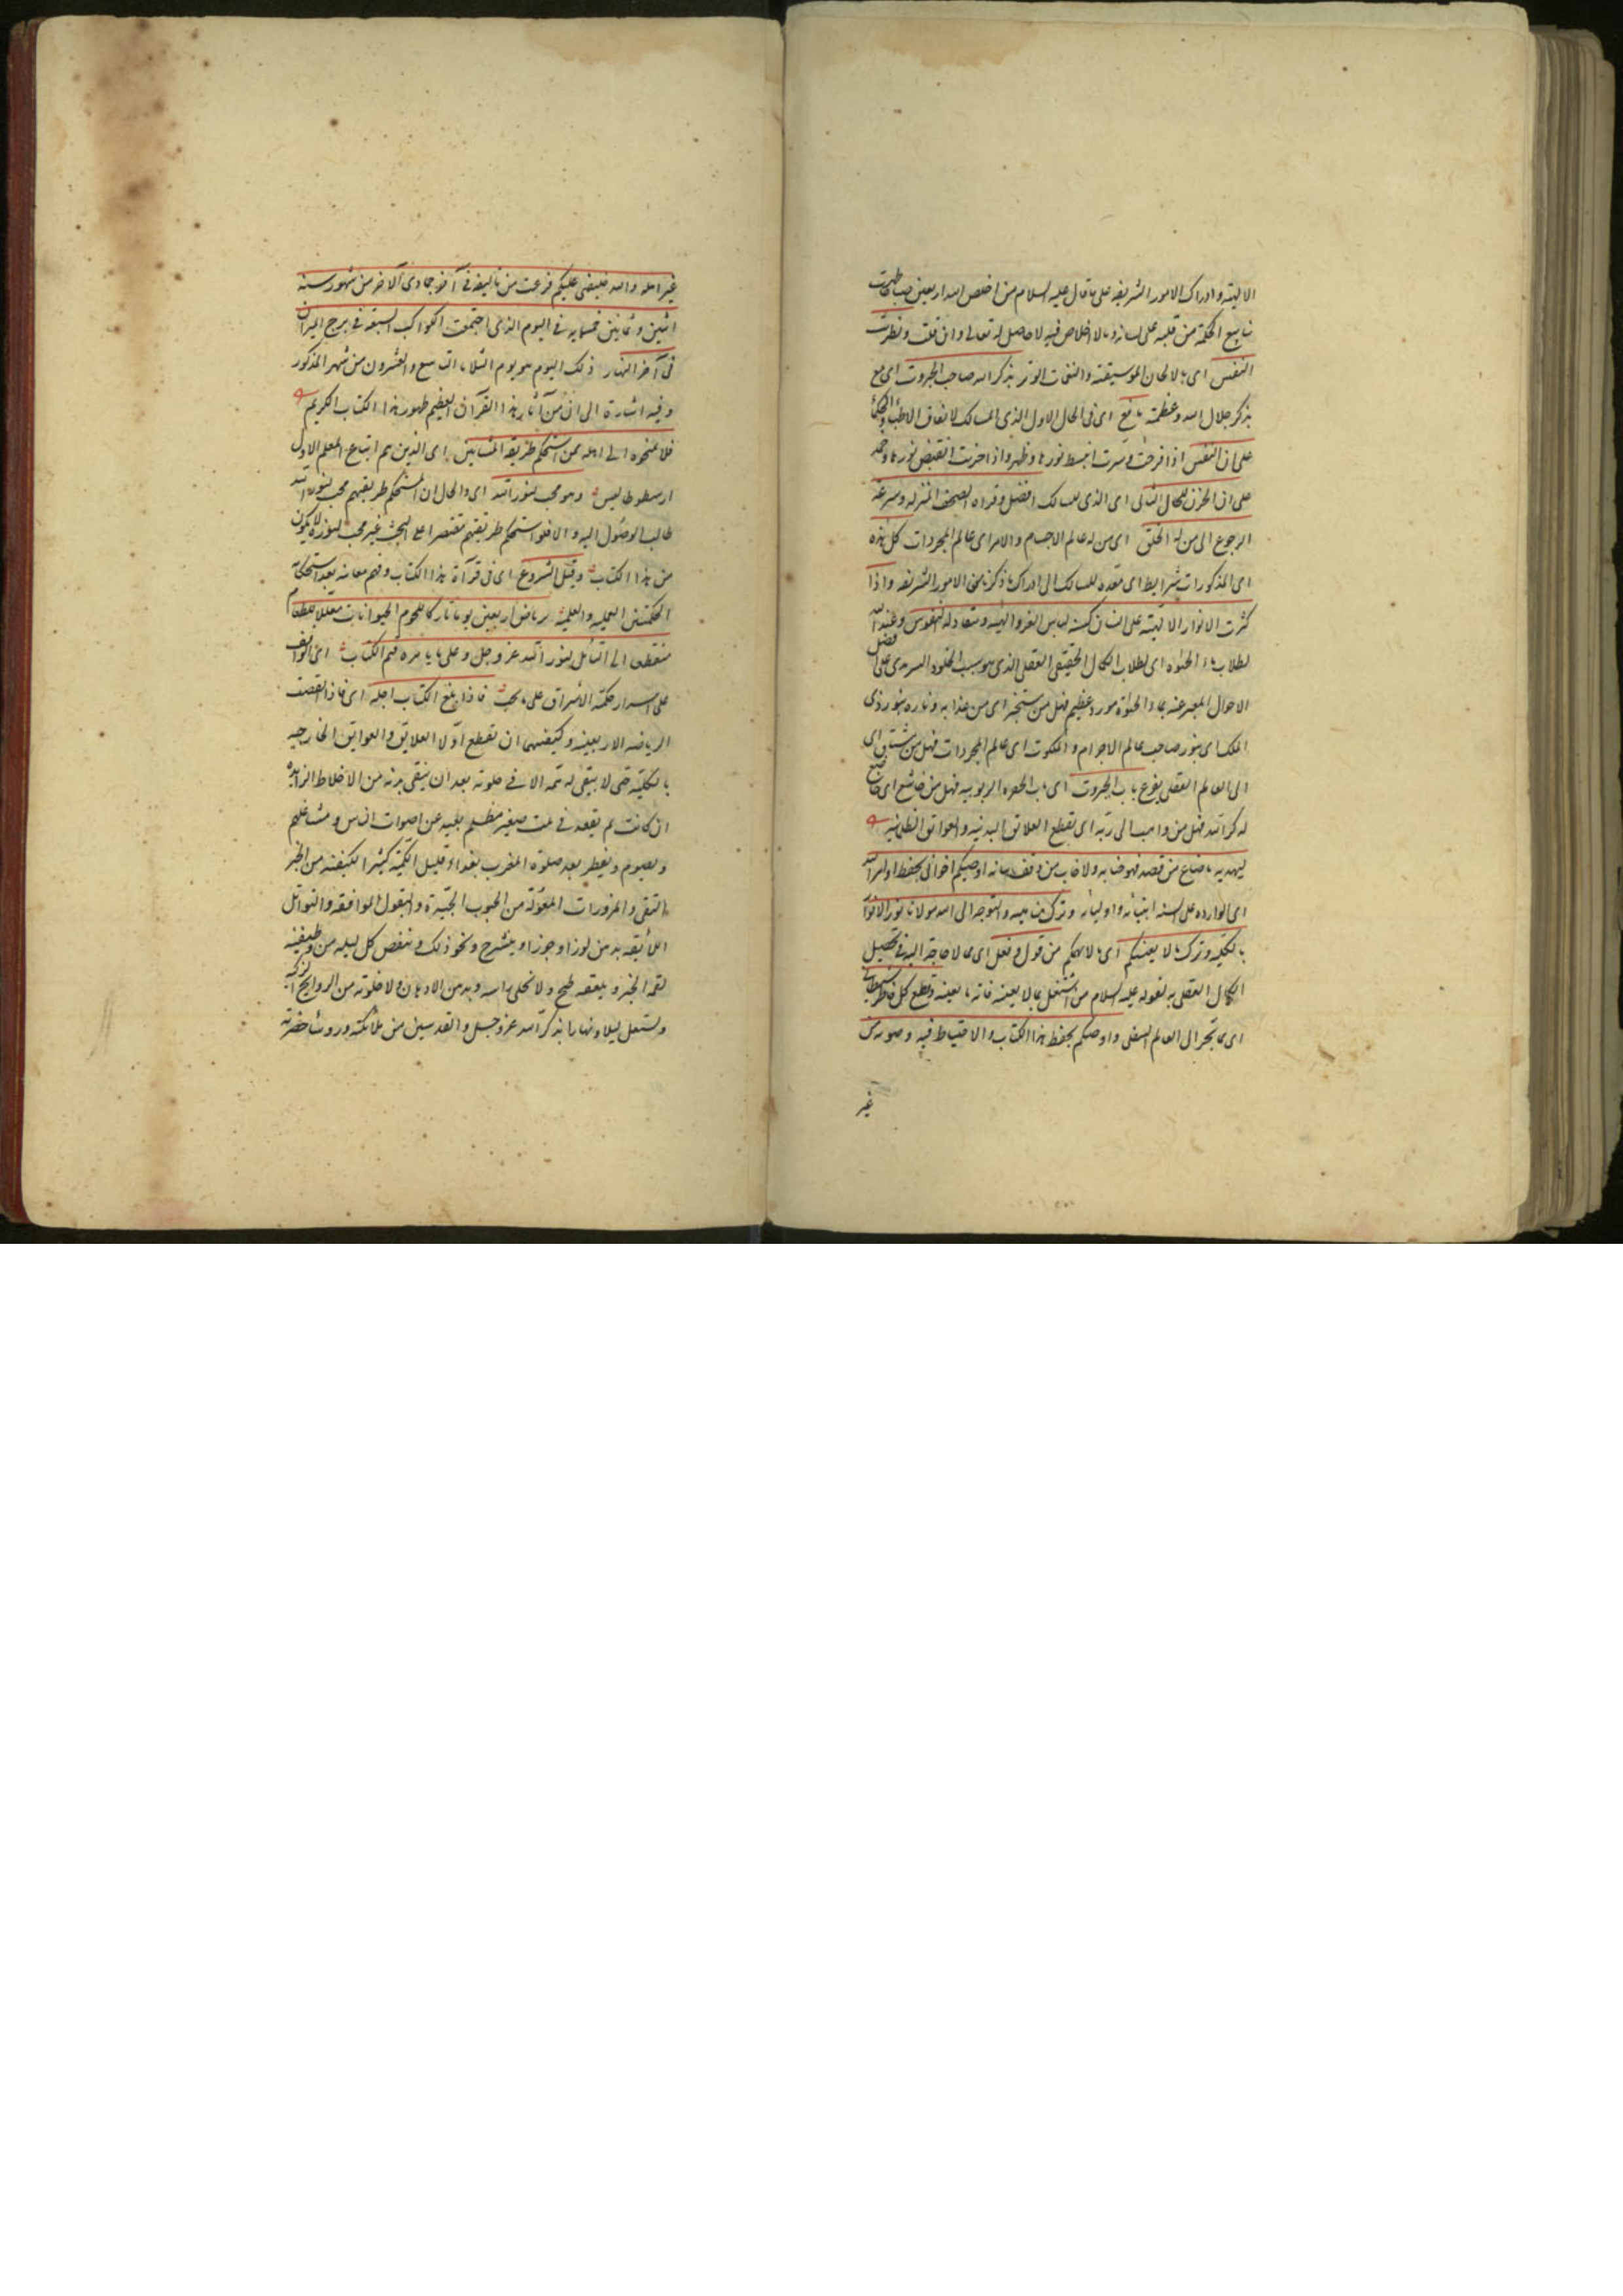 الالهية وادراك الامور الشريفة على ما قال عليه السلام من اخلص لله اربعين صباحا ظهرت
ينابيع الحكمة من قلبه على لسانه وما لا اخلاص فيه لا حاصل له تعالى وان
النفس اى بالالحان الموسيقية والنغمات الوتر بذكر الله صاحب الجبروت اى مع
بذكر جلال الله وعظمته نافع اى فى الحال الاول الذى للسالك لاتفاق الاطباء والحكماء
على ان النفس اذا فرحت وسرت انبسط نورها وظهر واذا حزنت انقبض نورها
على ان الحزن للحال الثانى اى الذى للسالك افضل وقراءة الصحف المنزلة وسرعة
الرجوع الى من له الخلق اى من له عالم الاجسام والامر اى عالم المجردات كل هذه
اى المذكورات شرايط اى معدة للسالك الى ادراك ما ذكرنا من الامور الشريفة واذا
كثرت الانوار الالهية على انسان كسته لباس العز والهيبة وتنقاد له النفوس وعند الله
لطلاب ماء الحيوة اى لطلاب الكمال الحقيقى العقلى الذى هو سبب الخلود السرمدى على افضل
الاحوال المعبر عنه بماء الحيوة مورد عظيم فهل من مستجير اى من عذابه وناره بنور ذى
الملك اى بنور صاحب عالم الاجرام والملكوت اى عالم المجردات فهل من مشتاق اى
الى العالم العقلى يقرع باب الجبروت اى باب الحضرة الربوبية فهل من خاشع اى خاضع
لذكر الله فهل من ذاهب الى ربه اى بقطع العلائق البدنية والعوائق الظلمانية
ليهديه ما ضاع من قصد نحو جنابه ولا خاب من وقف ببابه اوصيكم اخوانى بحفظ اوامر الله
اى الواردة على السنة انبيائه واوليائه وترك مناهيه والتوجه الى الله مولانا نور الانوار
بالكلية وترك ما لا يعنيكم اى ما لا يهمكم من قول وفعل اى مما لا حاجة اليه فى تحصيل
الكمال العقلى به لقوله عليه السلام من اشتغل بما لا يعنيه فاته ما يعنيه وقطع كل خاطر شيطانى
اى مما يجر الى العالم السفلى واوصيكم بحفظ هذا الكتاب والاحتياط فيه وصونه عن
غير
غير اهله والله خليفتى عليكم فرغت من تاليفه فى آخر جمادى الآخر من شهور سنة
اثنين وثمانين وخمسمايه فى اليوم الذى اجتمعت الكواكب السبعة فى برج الميزان
فى آخر النهار ذلك اليوم هو يوم الثلاثاء التاسع والعشرون من شهر المذكور
وفيه اشارة الى ان من آثار هذا القرآن العظيم ظهور هذا الكتاب الكريم
فلا تمنحوه الى اهله ممن استحكم طريقة المشائين اى الذين هم اتباع المعلم الاول
ارسطوطاليس وهو محب لنور الله اى والحال ان المستحكم طريقتهم محب لنور الله
طالب الوصول اليه والا فلو استحكم طريقتهم مقتصرا على البحث غير محب لنوره لا يكون
من هذا الكتاب وقبل الشروع اى فى قراءة هذا الكتاب وفهم معانيه بعد استحكام
الحكمتين العملية والعلمية يرتاض اربعين يوما تاركا للحوم الحيوانات مقللا للطعام
منقطعا الى التامل لنور الله عز وجل وعلى ما يامره قيم الكتاب اى الواقف
على اسرار حكمة الاشراق على ما يجب فاذا بلغ الكتاب اجله اى فاذا انقضت
الرياضة الاربعينية وكيفيتها ان تقطع اولا العلايق والعوايق الخارجية
بالكلية حتى لا يبقى له همة الا فى خلوته بعد ان ينقى بدنه من الاخلاط الزايدة
ان كانت ثم يقعد فى بيت صغير مظلم بعيد عن اصوات الناس ومشاغلهم
ويصوم ويفطر بعد صلوة المغرب بغداء قليل الكمية كثير الكيفية من الخبز
النقى والمزورات المعمولة من الحبوب الجيدة والبقول الموافقة والتوابل
اللائقة بدهن لوز او جوز او شيرج ونحو ذلك وينقص كل ليلة من وظيفته
لقمة الخبز وملعقة طبيخ ولا يخلى راسه وبدنه من الادهان ولا خلوته من الروايح الزكية
ويشتغل ليلا ونهارا بذكر الله عز وجل والقدسيين من ملائكته ورؤساء حضرته